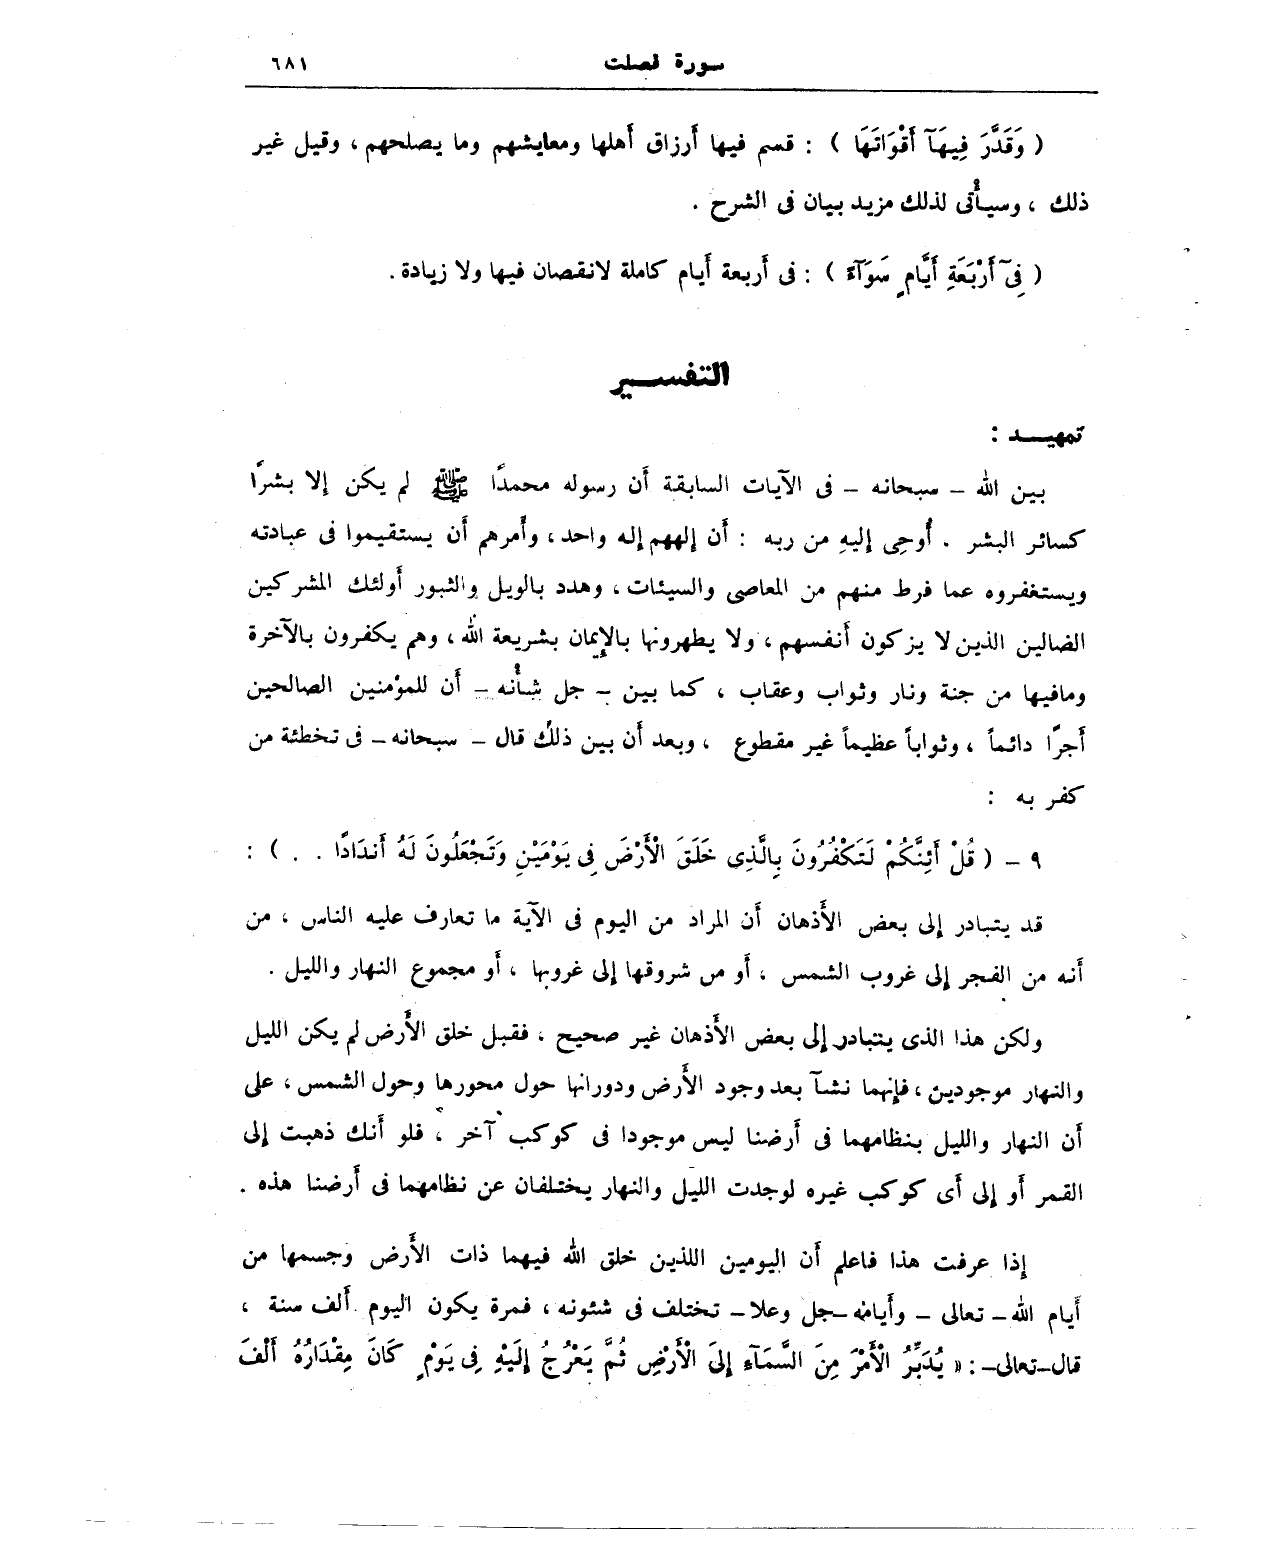 سورة فصلت ٦٨١
( وَقَدَّرَ فِيهَآ أَقْوَاتَهَا ) : قسم فيها أرزاق أهلها ومعايشهم وما يصلحهم ، وقيل غير
ذلك ، وسيأتى لذلك مزيد بيان فى الشرح .
( فِىٓ أَرْبَعَةِ أَيَّامٍ سَوَآءً ) : فى أربعة أيام كاملة لانقصان فيها ولا زيادة .
التفسـير
تمهيـد :
بين الله - سبحانه - فى الآيات السابقة أن رسوله محمدًا ﷺ لم يكن إلا بشرًا
كسائر البشر . أُوحِى إليهِ من ربه : أن إلههم إله واحد ، وأمرهم أن يستقيموا فى عبادته
ويستغفروه عما فرط منهم من المعاصى والسيئات ، وهدد بالويل والثبور أولئك المشركين
الضالين الذين لا يزكون أنفسهم ، ولا يطهرونها بالإيمان بشريعة الله ، وهم يكفرون بالآخرة
ومافيها من جنة ونار وثواب وعقاب ، كما بين - جل شأنه - أن للمؤمنين الصالحين
أجرًا دائماً ، وثواباً عظيماً غير مقطوع ، وبعد أن بين ذلك قال - سبحانه - فى تخطئة من
كفر به :
٩ - ( قُلْ أَئِنَّكُمْ لَتَكْفُرُونَ بِالَّذِى خَلَقَ الْأَرْضَ فِى يَوْمَيْنِ وَتَجْعَلُونَ لَهُ أَندَادًا . . ) :
قد يتبادر إلى بعض الأذهان أن المراد من اليوم فى الآية ما تعارف عليه الناس ، من
أنه من الفجر إلى غروب الشمس ، أو من شروقها إلى غروبها ، أو مجموع النهار والليل .
ولكن هذا الذى يتبادر إلى بعض الأذهان غير صحيح ، فقبل خلق الأرض لم يكن الليل
والنهار موجودين ، فإنهما نشآ بعد وجود الأرض ودورانها حول محورها وحول الشمس ، على
أن النهار والليل بنظامهما فى أرضنا ليس موجودا فى كوكب آخر ، فلو أنك ذهبت إلى
القمر أو إلى أى كوكب غيره لوجدت الليل والنهار يختلفان عن نظامهما فى أرضنا هذه .
إذا عرفت هذا فاعلم أن اليومين اللذين خلق الله فيهما ذات الأرض وجسمها من
أيام الله - تعالى - وأيامه - جل وعلا - تختلف فى شئونه ، فمرة يكون اليوم ألف سنة ،
قال - تعالى - : « يُدَبِّرُ الْأَمْرَ مِنَ السَّمَآءِ إِلَى الْأَرْضِ ثُمَّ يَعْرُجُ إِلَيْهِ فِى يَوْمٍ كَانَ مِقْدَارُهُ أَلْفَ